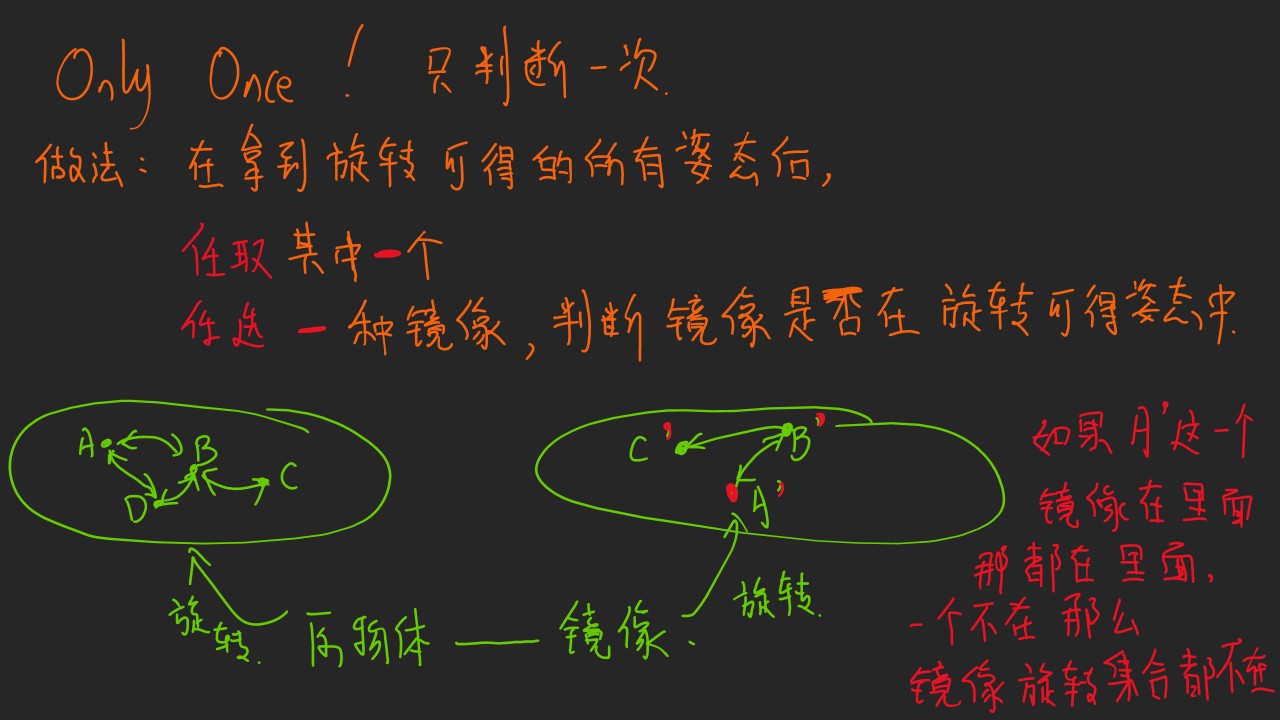 Only Once! 只判断一次.
做法: 在拿到旋转可得的所有姿态后,
任取其中一个
任选一种镜像,判断镜像是否在旋转可得姿态中.
A B C D
C' B' A'
如果A'这一个
镜像在里面
那都在里面,
一个不在那么
镜像旋转集合都不在
旋转.
原物体 — 镜像.
旋转.